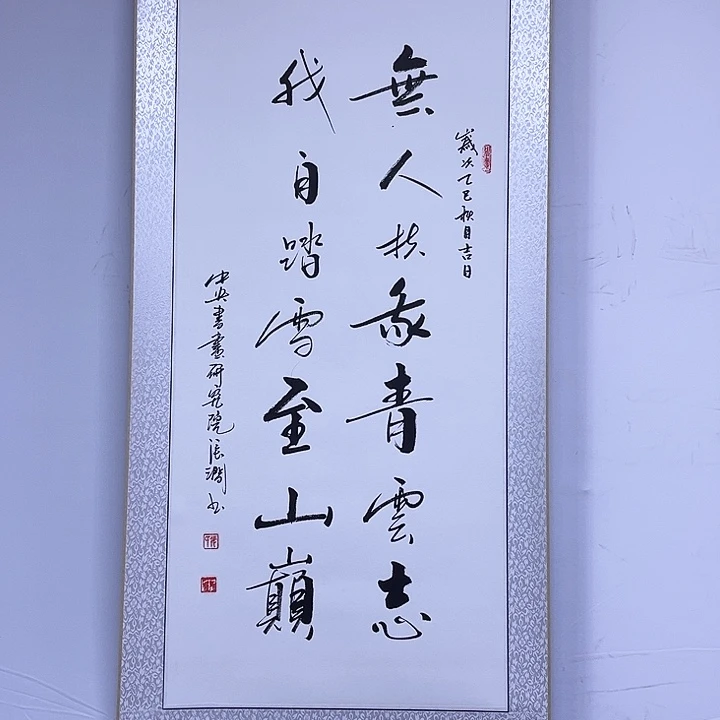 歲次乙巳秋月吉日
無人扶我青雲志
我自踏雪至山巔
中央書畫研究院張潤书